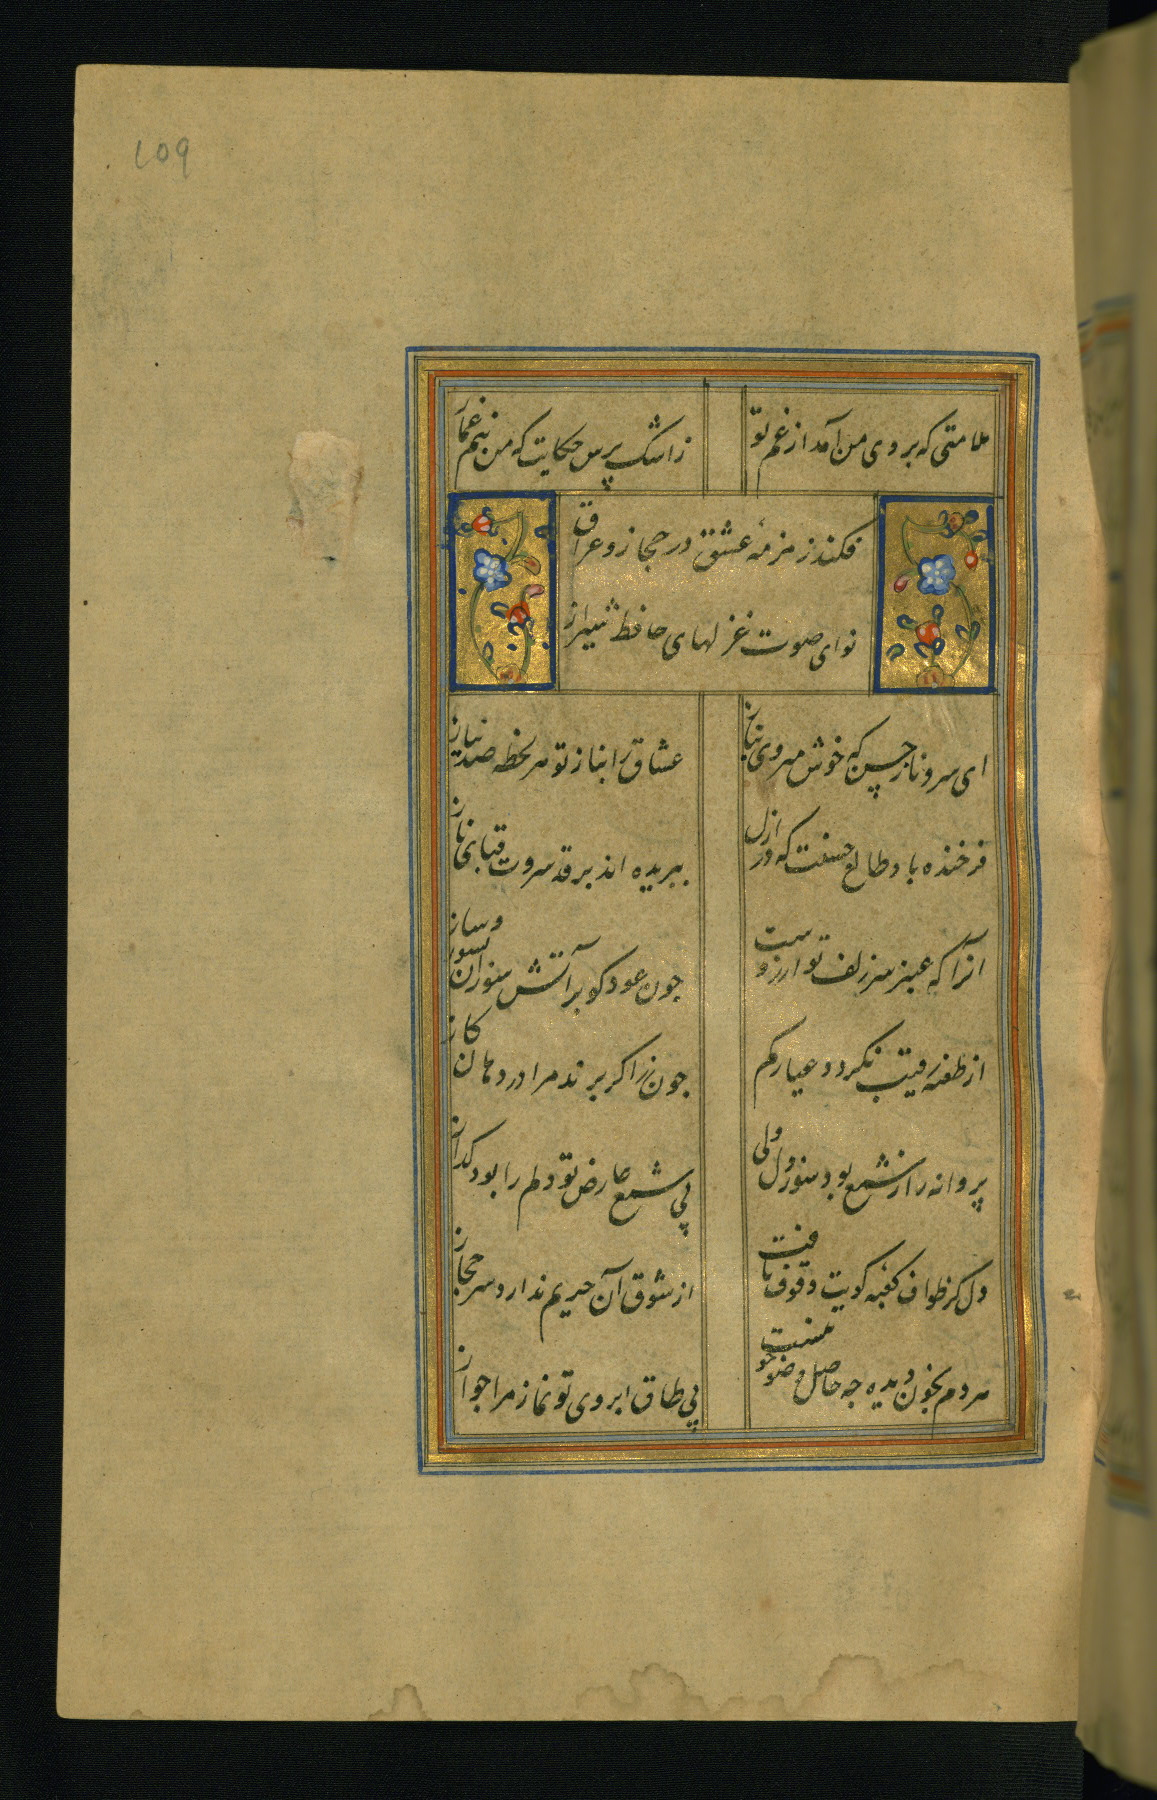 109
ملامتی که بروی من آمد از غم تو
ز اشک پرس حکایت که من نیم غماز
فکند زمزمهٔ عشق در حجاز و عراق
نوای صوت غزلهای حافظ شیراز
ای سرو ناز حسن که خوش میروی بناز
عشاق را بناز تو هر لحظه صد نیاز
فرخنده باد طالع حسنت که در ازل
ببریده اند بر قد سروت قبای ناز
انرا که عنبر سر زلف تو ارزوست
چون عود کو بر آتش سوزان بسوز و ساز
از طعنه رقیب نکردد عیار کم
چون زر اکر برند مرا در دهان کاز
پروانه را ز شمع بود سوز دل ولی
بی شمع عارض تو دلم را بود کداز
دل کز طواف کعبه کویت وقوف یافت
از شوق آن حریم ندارد سر حجاز
هر دم بخون دیده چه حاصل وضو چو نیست
بی طاق ابروی تو نماز مرا جواز